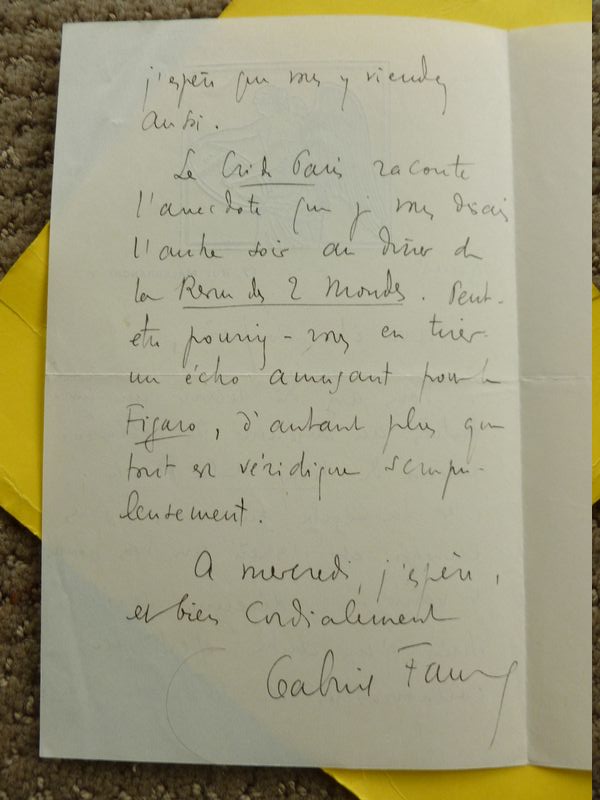 j'espère que vous y viendrez
aussi.
Le Cri de Paris raconte
l'anecdote que je vous disais
l'autre soir au dîner de
la Revue des 2 Mondes. Peut-
être pourriez-vous en tirer
un écho amusant pour le
Figaro, d'autant plus que
tout est véridique scrupu-
leusement.
A mercredi, j'espère,
et bien cordialement
Gabriel Faure